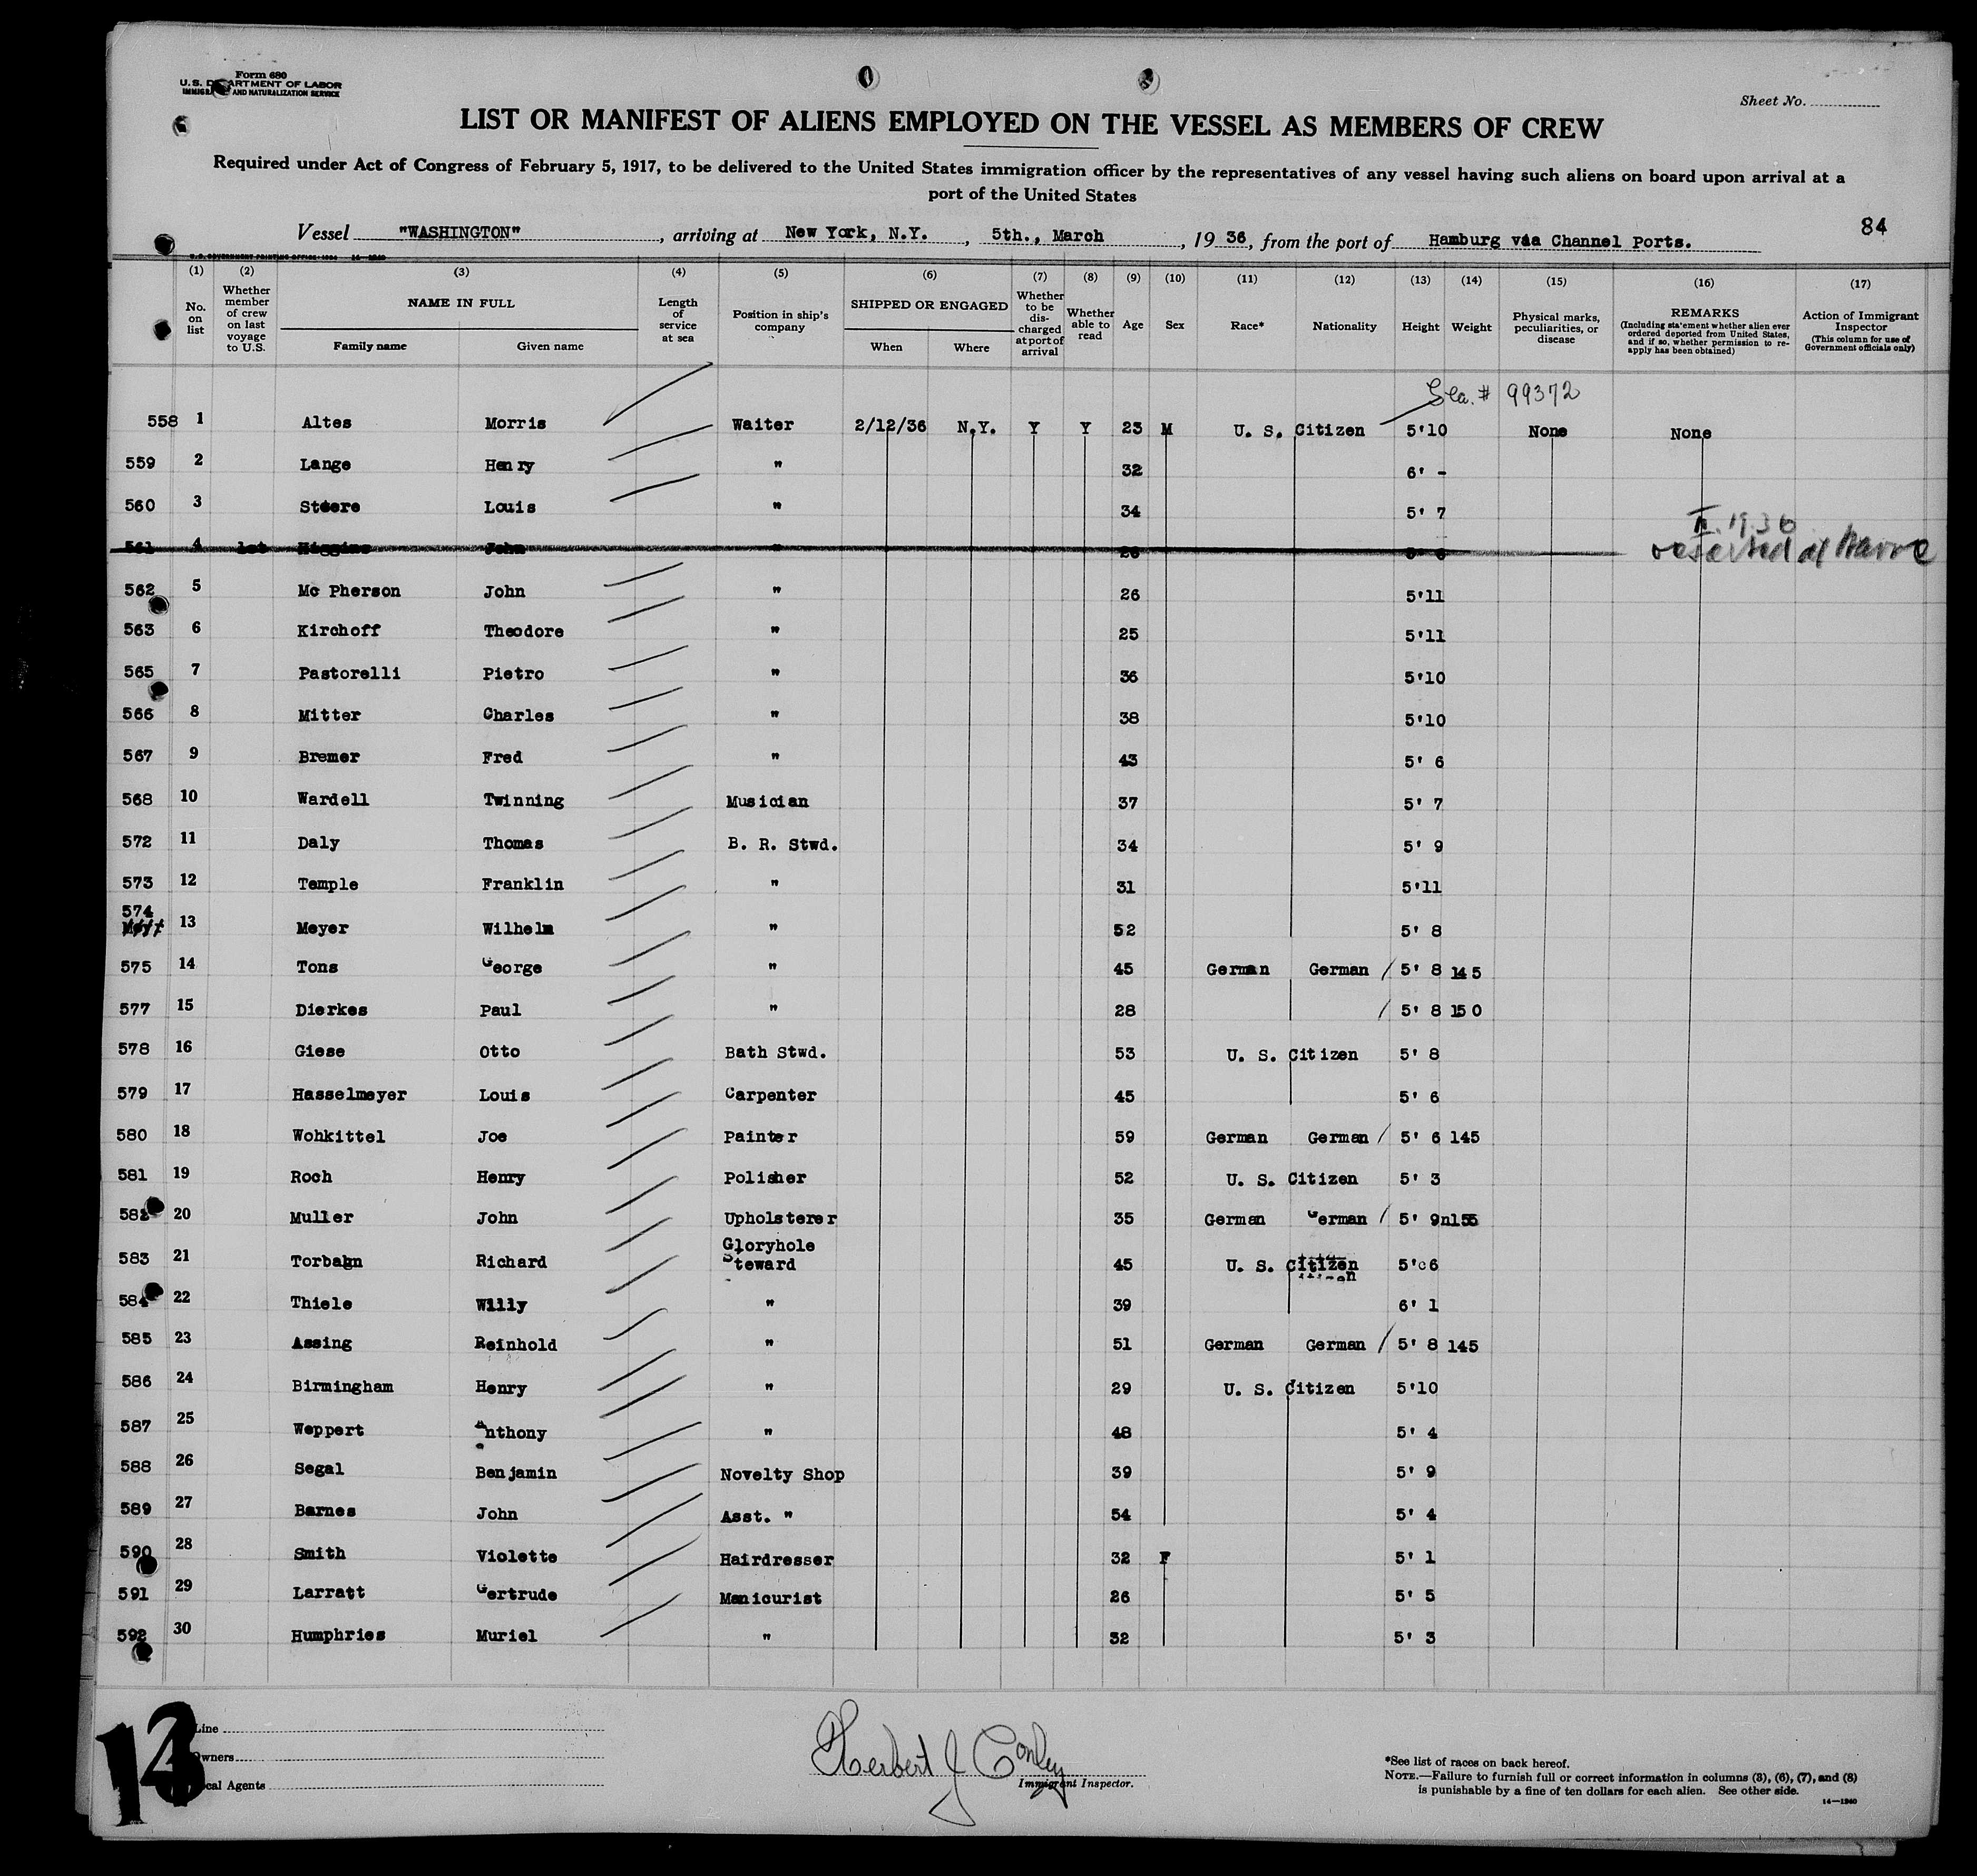 Form 680
U.S. DEPARTMENT OF LABOR
IMMIGRATION AND NATURALIZATION SERVICE
Sheet No.
LIST OR MANIFEST OF ALIENS EMPLOYED ON THE VESSEL AS MEMBERS OF CREW
Required under Act of Congress of February 5, 1917, to be delivered to the United States immigration officer by the representatives of any vessel having such aliens on board upon arrival at a
port of the United States
84
Vessel "WASHINGTON", arriving at New York, N.Y., 5th., March, 19 36, from the port of Hamburg via Channel Ports.
(1) (2) (3) (4) (5) (6) (7) (8) (9) (10) (11) (12) (13) (14) (15) (16) (17)
No. on list
Whether member of crew on last voyage to U.S.
NAME IN FULL
Family name Given name
Length of service at sea
Position in ship's company
SHIPPED OR ENGAGED
When Where
Whether to be discharged at port of arrival
Whether able to read
Age Sex Race* Nationality Height Weight
Physical marks, peculiarities, or disease
REMARKS
(Including statement whether alien ever ordered deported from United States, and if so, whether permission to re-apply has been obtained)
Action of Immigrant Inspector
(This column for use of Government officials only)
# 99372
558 1 Altes Morris Waiter 2/12/36 N.Y. Y Y 23 M U. S. Citizen 5'10 None None
559 2 Lange Henry " 32 6' -
560 3 Steere Louis " 34 5' 7
561 4 1st Higgins John " 26 5' 6 deserted at Havre
562 5 Mc Pherson John " 26 5'11
563 6 Kirchoff Theodore " 25 5'11
565 7 Pastorelli Pietro " 36 5'10
566 8 Mitter Charles " 38 5'10
567 9 Bremer Fred " 43 5' 6
568 10 Wardell Twinning Musician 37 5' 7
572 11 Daly Thomas B. R. Stwd. 34 5' 9
573 12 Temple Franklin " 31 5'11
574 13 Meyer Wilhelm " 52 5' 8
575 14 Tons George " 45 German German 5' 8 145
577 15 Dierkes Paul " 28 5' 8 150
578 16 Giese Otto Bath Stwd. 53 U. S. Citizen 5' 8
579 17 Hasselmeyer Louis Carpenter 45 5' 6
580 18 Wohkittel Joe Painter 59 German German 5' 6 145
581 19 Roch Henry Polisher 52 U. S. Citizen 5' 3
582 20 Muller John Upholsterer 35 German German 5' 9 155
583 21 Torbahn Richard Gloryhole Steward 45 U. S. Citizen 5' 6
584 22 Thiele Willy " 39 6' 1
585 23 Assing Reinhold " 51 German German 5' 8 145
586 24 Birmingham Henry " 29 U. S. Citizen 5'10
587 25 Weppert Anthony " 48 5' 4
588 26 Segal Benjamin Novelty Shop 39 5' 9
589 27 Barnes John Asst. " 54 5' 4
590 28 Smith Violette Hairdresser 32 F 5' 1
591 29 Larratt Gertrude Manicurist 26 5' 5
592 30 Humphries Muriel " 32 5' 3
Line
Owners
Local Agents
Herbert J Conley
Immigrant Inspector.
*See list of races on back hereof.
NOTE.—Failure to furnish full or correct information in columns (3), (6), (7), and (8)
is punishable by a fine of ten dollars for each alien. See other side.
14—1240